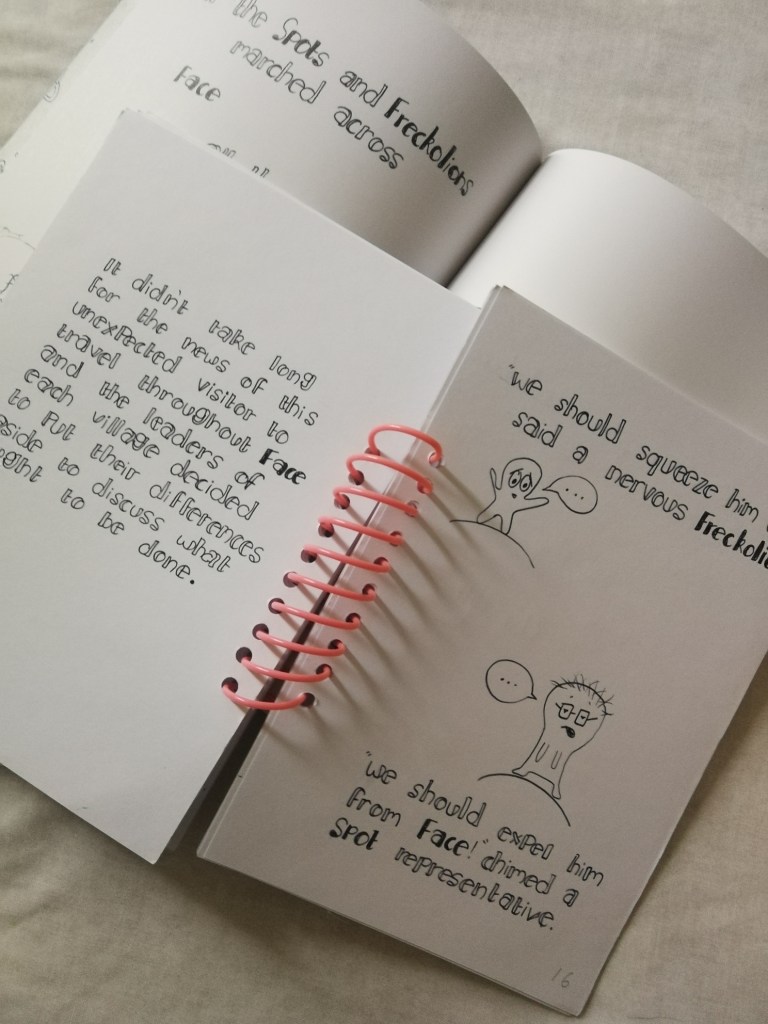 the Spots and Freckolions
marched across
Face
It didn't take long
for the news of this
unexpected visitor to
travel throughout Face
and the leaders of
each village decided
to put their differences
aside to discuss what
ought to be done.
"we should squeeze him
said a nervous Freckolio
...
...
"we should expel him
from Face!" chimed a
Spot representative.
16